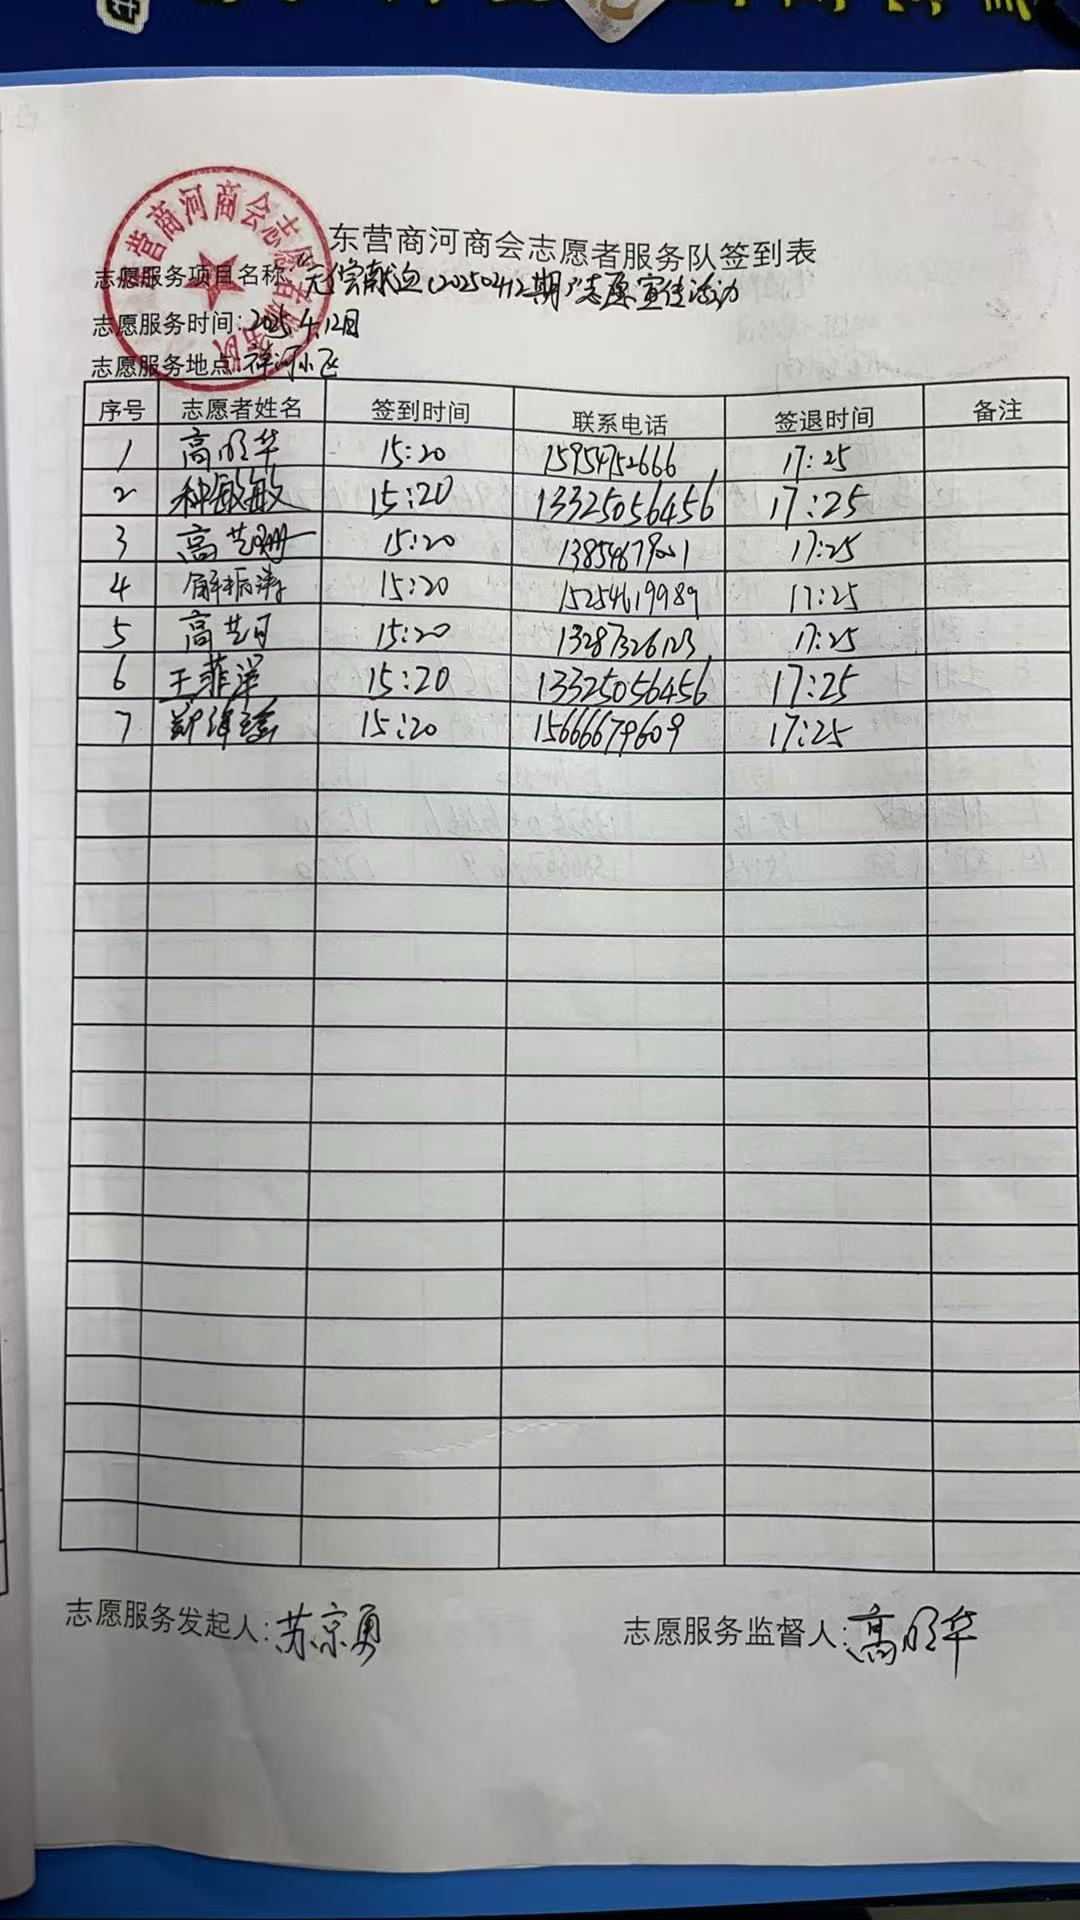 东营商河商会志愿者服务队
东营商河商会志愿者服务队签到表
志愿服务项目名称:“无偿献血(20250412期)”志愿宣传活动
志愿服务时间:2025.4.12日
志愿服务地点:祥河小区
序号 志愿者姓名 签到时间 联系电话 签退时间 备注
1 高明华 15:20 15954752666 17:25
2 种敏敏 15:20 13325056456 17:25
3 高艺珊 15:20 13854679001 17:25
4 解振涛 15:20 15254619989 17:25
5 高艺可 15:20 13287326123 17:25
6 王菲洋 15:20 13325056456 17:25
7 15:20 15666679609 17:25
志愿服务发起人:苏京勇 志愿服务监督人:高明华